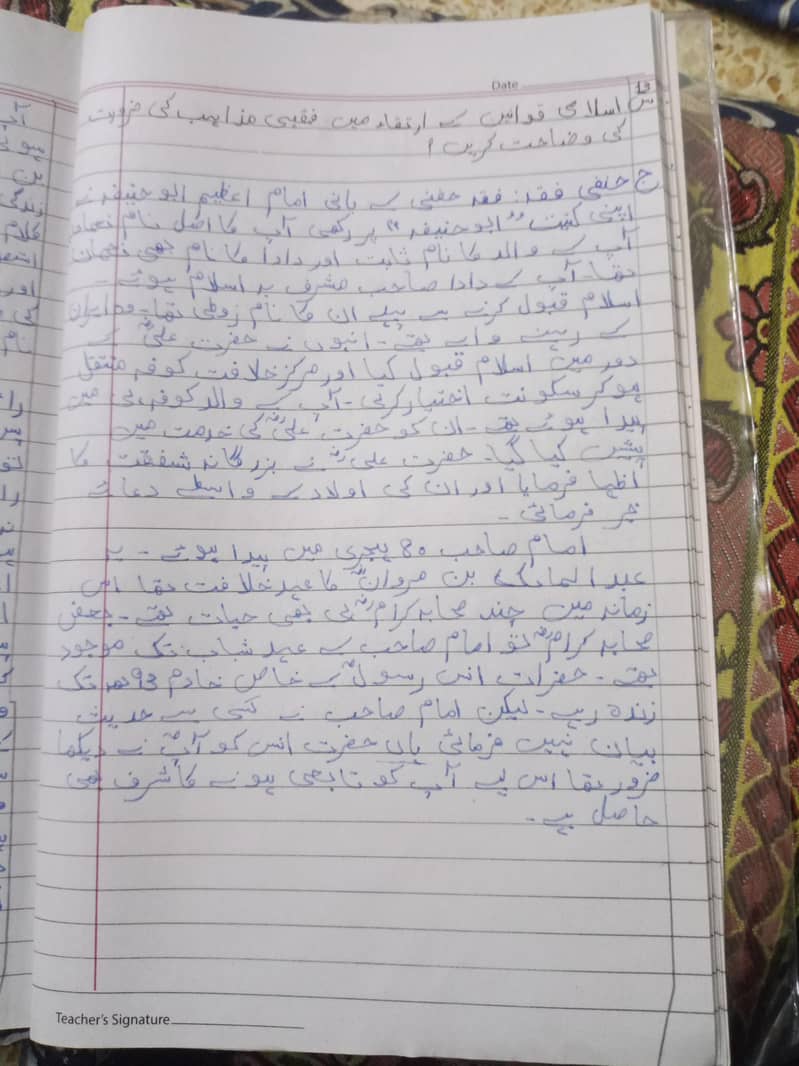 Date
13
س اسلامی قوانین کے ارتقاء میں فقہی مذاہب کی ضرورت
کی وضاحت کریں؟
ج حنفی فقہ: فقہ حفنی کے بانی امام اعظیم ابو حنیفہ نے
اپنی کنیت "ابو حنیفہ" پر رکھی آپ کا اصل نام نعمان
آپ کے والد کا نام ثابت اور دادا کا نام بھی نعمان
تھا۔ آپ کے دادا صاحب مشرف بہ اسلام ہوئے۔
اسلام قبول کرنے سے پہلے ان کا نام زوطی تھا۔ وہ ایران
کے رہنے والے تھے۔ انہوں نے حضرت علیؓ کے
دور میں اسلام قبول کیا اور مرکز خلافت کوفہ منتقل
ہو کر سکونت اختیار کرلی۔ آپ کے والد کوفہ ہی میں
پیدا ہوئے تھے۔ ان کو حضرت علیؓ کی خدمت میں
پیش کیا گیا۔ حضرت علیؓ نے بزرگانہ شفقت کا
اظہا فرمایا اور ان کی اولاد کے واسطے دعائے
خیر فرمائی۔
امام صاحب 80 ہیجری میں پیدا ہوئے۔ یہ
عبد المالک بن مروان کا عہد خلافت تھا اس
زمانہ میں چند صحابہ کرامؓ ہی بھی حیات تھے۔ بعض
صحابہ کرامؓ تو امام صاحب کے عہد شباب تک موجود
تھے۔ حضرات انس رسولؐ کے خاص خادم 93ھ تک
زندہ رہے۔ لیکن امام صاحب نے کسی سے حدیث
بیان نہیں فرمائی ہاں حضرت انس کو آپ نے دیکھا
ضرور تھا اس لیے آپ کو تابعی ہونے کا شرف بھی
حاصل ہے۔
Teacher's Signature